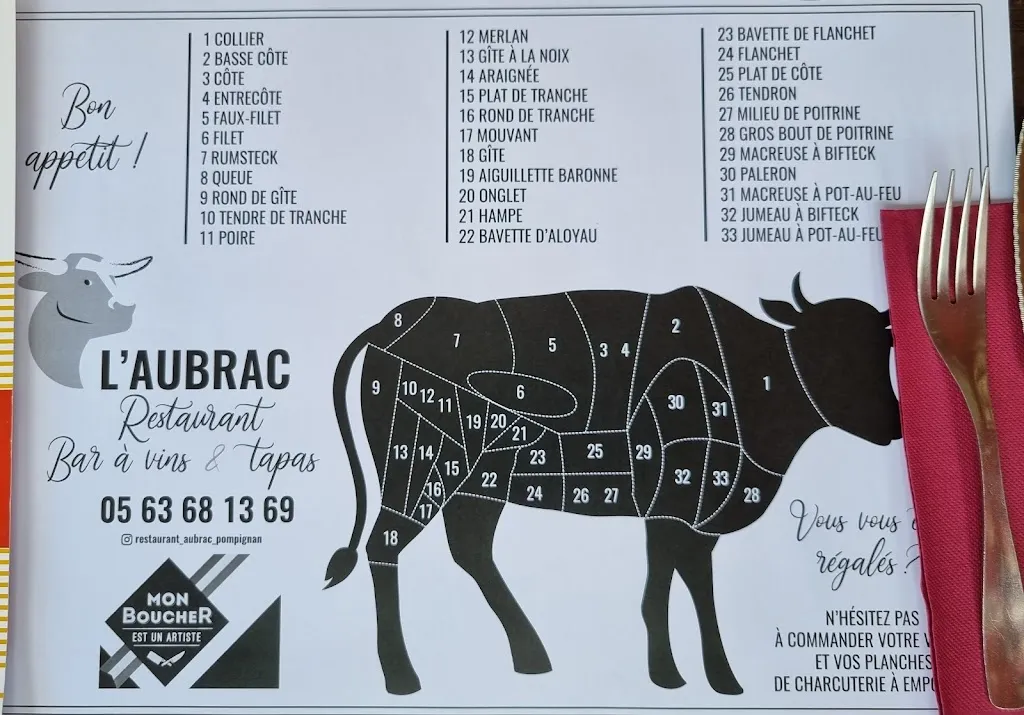 Bon
appétit !
1 COLLIER
2 BASSE CÔTE
3 CÔTE
4 ENTRECÔTE
5 FAUX-FILET
6 FILET
7 RUMSTECK
8 QUEUE
9 ROND DE GÎTE
10 TENDRE DE TRANCHE
11 POIRE
12 MERLAN
13 GÎTE À LA NOIX
14 ARAIGNÉE
15 PLAT DE TRANCHE
16 ROND DE TRANCHE
17 MOUVANT
18 GÎTE
19 AIGUILLETTE BARONNE
20 ONGLET
21 HAMPE
22 BAVETTE D'ALOYAU
23 BAVETTE DE FLANCHET
24 FLANCHET
25 PLAT DE CÔTE
26 TENDRON
27 MILIEU DE POITRINE
28 GROS BOUT DE POITRINE
29 MACREUSE À BIFTECK
30 PALERON
31 MACREUSE À POT-AU-FEU
32 JUMEAU À BIFTECK
33 JUMEAU À POT-AU-FEU
L'AUBRAC
Restaurant
Bar à vins & tapas
05 63 68 13 69
restaurant_aubrac_pompignan
MON
BOUCHER
EST UN ARTISTE
8
7
5
3 4
2
1
9
10
12
11
6
30
31
19
20
21
13
14
15
23
25
29
32
33
16
22
24
26 27
28
17
18
Vous vous
régalés ?
N'HÉSITEZ PAS
À COMMANDER VOTRE
ET VOS PLANCHES
DE CHARCUTERIE À